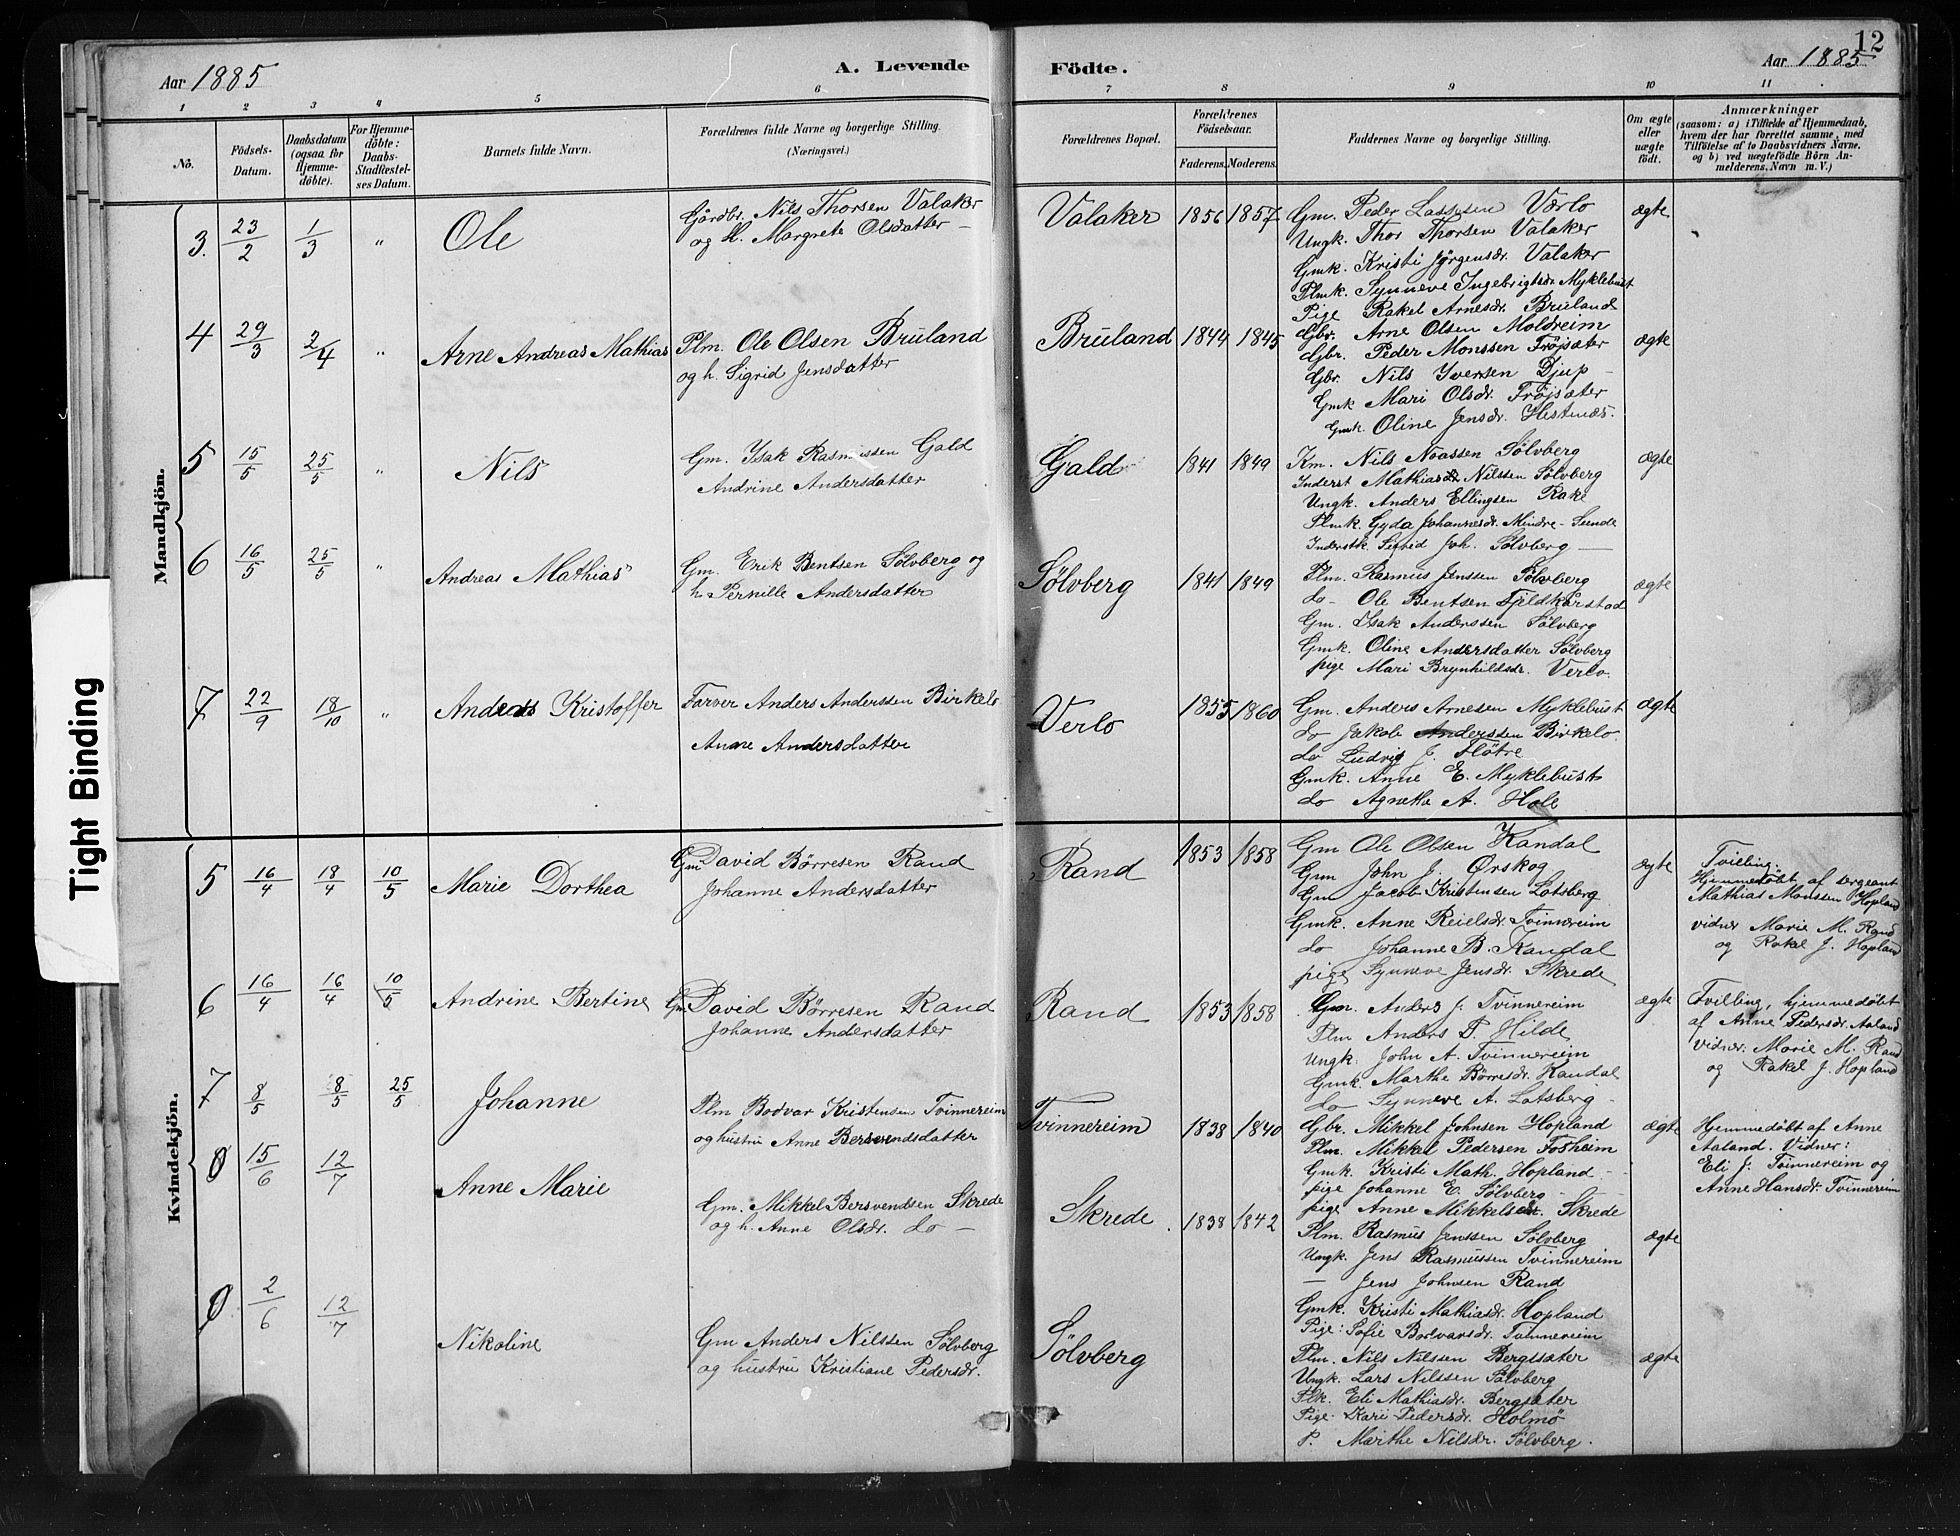 12
Aar 1885
A. Levende Födte.
Aar 1885
1 2 3 4 5 6 7 8 9 10 11
No.
Födsels-Datum.
Daabsdatum (ogsaa for Hjemme-döbte).
For Hjemme-döbte: Daabs-Stadfæstel-ses Datum.
Barnets fulde Navn.
Forældrenes fulde Navne og borgerlige Stilling.
(Næringsvei.)
Forældrenes Bopæl.
Forældrenes Födselsaar.
Faderens. Moderens.
Faddernes Navne og borgerlige Stilling.
Om ægte eller uægte födt.
Anmærkninger
(saasom: a) i Tilfælde af Hjemmedaab,
hvem der har forrettet samme, med
Tilföielse af to Daabsvidners Navne.
og b) ved uægtefödte Börn An-
melderens Navn m.V.)
Mandkjön.
3. 23/2 1/3 " Ole
Gårdbr. Nils Thorsen Valaker
og H. Margrete Olsdatter —
Valaker 1856 1857
Gm. Peder Lassesen Værlo
Ungk. Thor Thorsen Valaker
Gmk. Kristi Jørgensdr. Valaker
Plmk. Synneve Ingebrigtsdr. Myklebust
Pige Rakel Arnesdr. Bruland
ægte
4 29/3 2/4 " Arne Andreas Mathias
Plm. Ole Olsen Bruland
og h. Sigrid Jensdatter
Bruland 1844 1845
Gbr. Arne Olsen Moldreim
Gbr. Peder Monssen Frøjsæter
Gbr. Nils Yversen Djup —
Gmk Mari Olsdr. Frøjsæter
Gmk. Oline Jensdr. Hestnæs.
ægte
5 15/5 25/5 " Nils
Gm. Ysak Rasmussen Gald
Andrine Andersdatter
Gald 1841 1849
Km. Nils Noassen Sølvberg
Inderst Mathias Nilssen Sølvberg
Ungk. Anders Ellingsen Rake
Plmk. Gyda Johannesdr. Mindre-Sunde
Inderstk. Sigrid Joh. Sølvberg —
ægte
6 16/5 25/5 " Andreas Mathias
Gm. Erik Bentsen Sølvberg og
h. Pernille Andersdatter
Sølvberg 1841 1849
Plm. Rasmus Jenssen Sølvberg
do — Ole Bentsen Fjeldkårstad
Gm. Isak Anderssen Sølvberg
Gmk. Oline Andersdatter Sølvberg
pige Mari Brynhildsdr. Verlo.
ægte
7 22/9 18/10 " Anders Kristoffer
Farver Anders Anderssen Birkelo
Anne Andersdatter
Verlo 1855 1860
Gm. Anders Arnesen Myklebust
do Jakob Anderssen Birkelo.
do Ludvig J. Fløtre
Gmk. Anne E. Myklebust
do Agnethe A. Hole
ægte
Kvindekjön.
5 16/4 18/4 10/5 Marie Dorthea
Gm David Børresen Rand
Johanne Andersdatter
Rand 1853 1858
Gm Ole Olsen Kandal
Gm John J. Ørskog
Gm Jacob Kristensen Lotsberg
Gmk. Anne Reielsdr. Tvinnereim
do Johanne B. Kandal
pige Synneve Jensdr. Skrede
ægte
Tvilling.
Hjemmedøbt af sergeant
Mathias Monssen Hopland
vidner Marie M. Rand
og Rakel J. Hopland
6 16/4 16/4 10/5 Andrine Bertine
Gm David Børresen Rand
Johanne Andersdatter
Rand 1853 1858
Gm. Anders J. Tvinnereim
Plm Anders P. Hilde
Ungk. John A. Tvinnereim
Gmk. Marthe Børresdr. Kandal
do Synneve A. Lotsberg —
ægte
Tvilling, hjemmedøbt
af Anne Pedersdr. Aaland
vidner: Marie M. Rand
og Rakel J. Hopland
7 8/5 8/5 25/5 Johanne
Plm Bodvar Kristensen Tvinnereim
og hustru Anne Bersvendsdatter
Tvinnereim 1838 1840
Gbr. Mikkel Johnsen Hopland
Plm. Mikkel Pedersen Fosheim
Gmk. Kristi Math. Hopland —
pige Johanne E. Sølvberg —
pige Anne Mikkelsdr. Skrede
ægte
Hjemmedøbt af Anne
Aaland. Vidner:
Eli J. Tvinnereim og
Anne Hansdr. Tvinnereim
8 15/6 12/7 Anne Marie
Gm. Mikkel Bersvendsen Skrede
og h. Anne Olsdr. do —
Skrede. 1838 1842
Plm. Rasmus Jenssen Sølvberg
Ungk. Jens Rasmussen Tvinnereim
— Jens Johnsen Rand
Gmk. Kristi Mathiasdr. Hopland
Pige: Sofie Bodvarsdr. Tvinnereim
ægte
9 2/6 12/7 Nikoline
Gm Anders Nilssen Sølvberg
og hustru Kristiane Pedersdr.
Sølvberg
Plm. Nils Nilssen Bergsæter
Ungk. Lars Nilssen Sølvberg
Plk. Eli Mathiasdr. Bergsæter
Pige Kari Pedersdr. Holmø
P. Marthe Nilsdr. Sølvberg.
ægte
Tight Binding